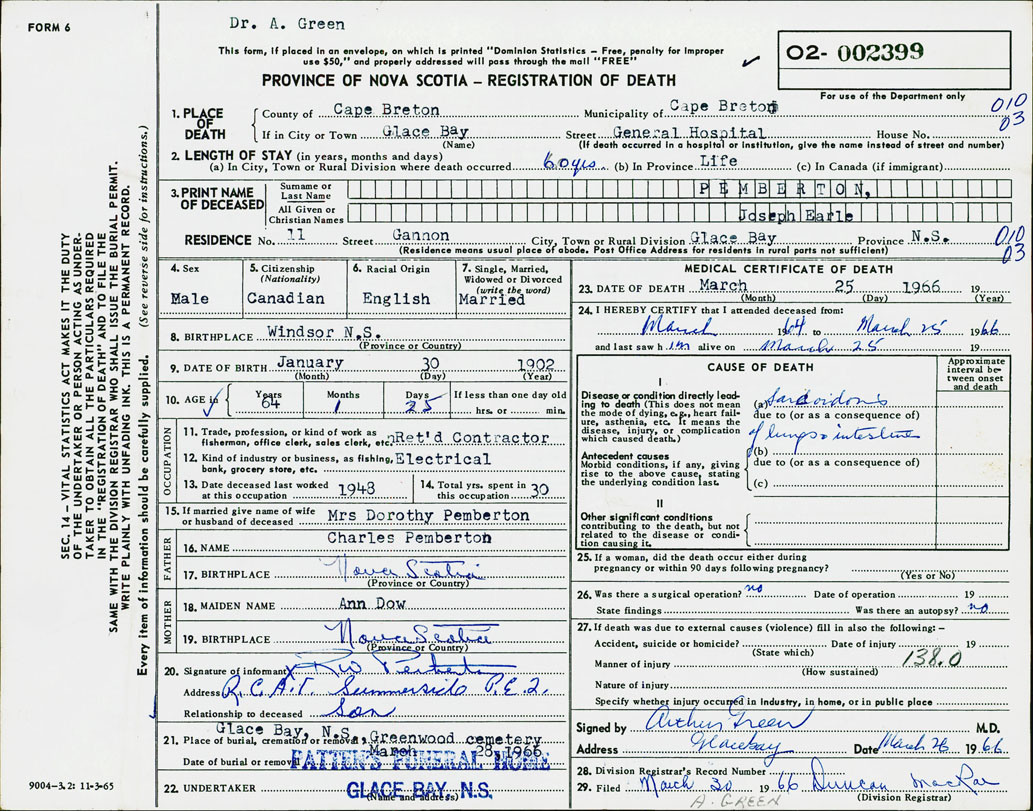 FORM 6
Dr. A. Green
This form, if placed in an envelope, on which is printed "Dominion Statistics – Free, penalty for improper
use $50," and properly addressed will pass through the mail "FREE"
PROVINCE OF NOVA SCOTIA – REGISTRATION OF DEATH
✓
02- 002399
For use of the Department only
1. PLACE OF DEATH
County of Cape Breton Municipality of Cape Breton 010
03
If in City or Town Glace Bay Street General Hospital House No.
(Name) (If death occurred in a hospital or institution, give the name instead of street and number)
2. LENGTH OF STAY (in years, months and days)
(a) In City, Town or Rural Division where death occurred 60 yrs. (b) In Province Life (c) In Canada (if immigrant)
3. PRINT NAME OF DECEASED
Surname or Last Name PEMBERTON,
All Given or Christian Names Joseph Earle
RESIDENCE No. 11 Street Gannon City, Town or Rural Division Glace Bay Province N.S. 010
03
(Residence means usual place of abode. Post Office Address for residents in rural parts not sufficient)
4. Sex
Male
5. Citizenship
(Nationality)
Canadian
6. Racial Origin
English
7. Single, Married,
Widowed or Divorced
(write the word)
Married
8. BIRTHPLACE Windsor N.S.
(Province or Country)
9. DATE OF BIRTH January 30 1902
(Month) (Day) (Year)
10. AGE in Years Months Days If less than one day old
✓ 64 1 25 hrs. or min.
OCCUPATION
11. Trade, profession, or kind of work as
fisherman, office clerk, sales clerk, etc. Ret'd Contractor
12. Kind of industry or business, as fishing, Electrical
bank, grocery store, etc.
13. Date deceased last worked
at this occupation 1948
14. Total yrs. spent in
this occupation 30
15. If married give name of wife
or husband of deceased Mrs Dorothy Pemberton
FATHER
16. NAME Charles Pemberton
17. BIRTHPLACE Nova Scotia
(Province or Country)
MOTHER
18. MAIDEN NAME Ann Dow
19. BIRTHPLACE Nova Scotia
(Province or Country)
20. Signature of informant X RW Pemberton
Address R.C.A.F. Summerside P.E.I.
Relationship to deceased Son
Glace Bay, N.S.
21. Place of burial, cremation or removal Greenwood cemetery
Date of burial or removal March 28, 1966
PATTEN'S FUNERAL HOME
22. UNDERTAKER GLACE BAY, N.S.
(Name and address)
MEDICAL CERTIFICATE OF DEATH
23. DATE OF DEATH March 25 1966 19
(Month) (Day) (Year)
24. I HEREBY CERTIFY that I attended deceased from:
March 1964 to March 25 1966
and last saw him alive on March 25 19
CAUSE OF DEATH
Approximate
interval be-
tween onset
and death
I
Disease or condition directly lead-
ing to death (This does not mean
the mode of dying, e.g., heart fail-
ure, asthenia, etc. It means the
disease, injury, or complication
which caused death.)
(a) Sarcoidosis
due to (or as a consequence of)
of lungs & intestine
Antecedent causes
Morbid conditions, if any, giving
rise to the above cause, stating
the underlying condition last.
(b)
due to (or as a consequence of)
(c)
II
Other significant conditions
contributing to the death, but not
related to the disease or condi-
tion causing it.
25. If a woman, did the death occur either during
pregnancy or within 90 days following pregnancy?
(Yes or No)
26. Was there a surgical operation? no Date of operation 19
State findings Was there an autopsy? no
27. If death was due to external causes (violence) fill in also the following: –
Accident, suicide or homicide? Date of injury 19
(State which)
138.0
Manner of injury
(How sustained)
Nature of injury
Specify whether injury occurred in industry, in home, or in public place
Signed by Arthur Green M.D.
Address Glace bay Date March 26 1966
28. Division Registrar's Record Number
29. Filed March 30 1966 Duncan MacRae
(Division Registrar)
A. GREEN
SEC. 14 – VITAL STATISTICS ACT MAKES IT THE DUTY
OF THE UNDERTAKER OR PERSON ACTING AS UNDER-
TAKER TO OBTAIN ALL THE PARTICULARS REQUIRED
IN THE "REGISTRATION OF DEATH" AND TO FILE THE
SAME WITH THE DIVISION REGISTRAR WHO SHALL ISSUE THE BURIAL PERMIT.
WRITE PLAINLY WITH UNFADING INK. THIS IS A PERMANENT RECORD.
Every item of information should be carefully supplied. (See reverse side for instructions.)
9004–3.2: 11-3-65